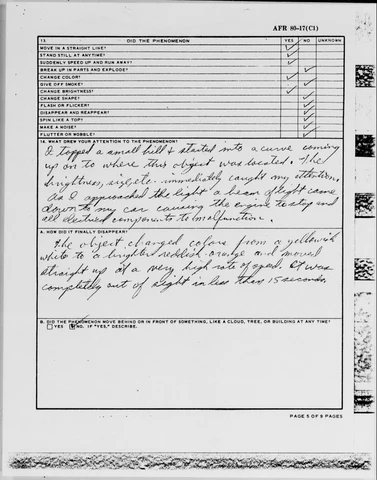 AFR 80-17(C1)
13. DID THE PHENOMENON YES NO UNKNOWN
MOVE IN A STRAIGHT LINE?
STAND STILL AT ANYTIME?
SUDDENLY SPEED UP AND RUN AWAY?
BREAK UP IN PARTS AND EXPLODE?
CHANGE COLOR?
GIVE OFF SMOKE?
CHANGE BRIGHTNESS?
CHANGE SHAPE?
FLASH OR FLICKER?
DISAPPEAR AND REAPPEAR?
SPIN LIKE A TOP?
MAKE A NOISE?
FLUTTER OR WOBBLE?
14. WHAT DREW YOUR ATTENTION TO THE PHENOMENON?
I topped a small hill & started into a curve coming
up on to where this object was located. The
brightness, size, etc. immediately caught my attention.
As I approached the light a beam of light came
down to my car causing the engine to stop and
all electrical components to malfunction.
A. HOW DID IT FINALLY DISAPPEAR?
The object changed colors from a yellowish
white to a brighter reddish orange and moved
straight up at a very high rate of speed. It was
completely out of sight in less than 15 seconds.
B. DID THE PHENOMENON MOVE BEHIND OR IN FRONT OF SOMETHING, LIKE A CLOUD, TREE, OR BUILDING AT ANY TIME?
YES NO. IF "YES," DESCRIBE.
PAGE 5 OF 9 PAGES